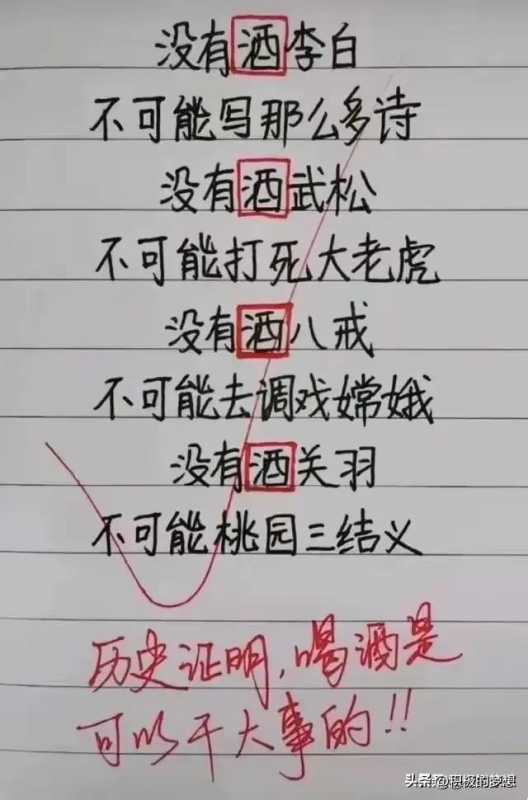 没有酒李白
不可能写那么多诗
没有酒武松
不可能打死大老虎
没有酒八戒
不可能去调戏嫦娥
没有酒关羽
不可能桃园三结义
历史证明,喝酒是
可以干大事的!!
头条@积极的梦想